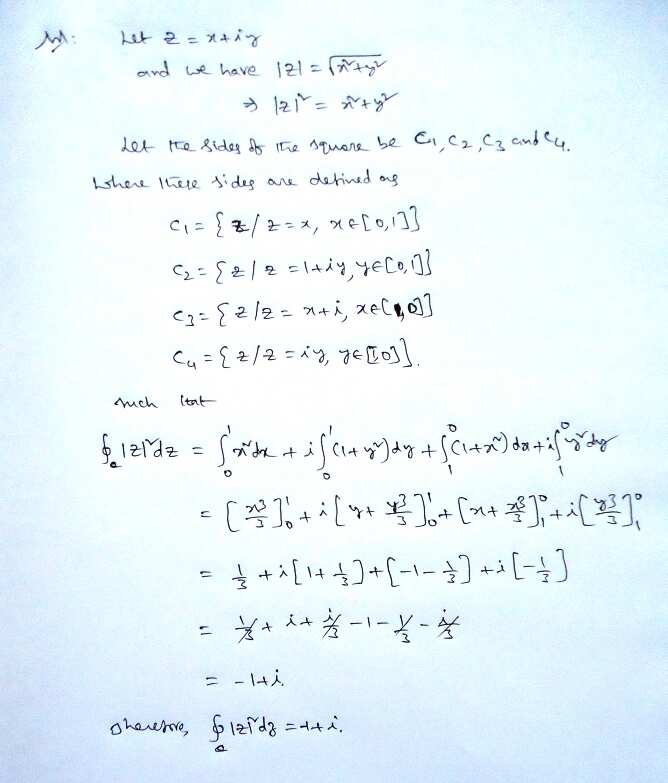 Ans: Let z = x+iy
and we have |z| = √(x²+y²)
⇒ |z|² = x²+y²
Let the sides of the square be C₁, C₂, C₃ and C₄.
Where these sides are defined as
C₁ = {z/z = x, x∈[0,1]}
C₂ = {z/z = 1+iy, y∈[0,1]}
C₃ = {z/z = x+i, x∈[1,0]}
C₄ = {z/z = iy, y∈[1,0]}.
such that
∮_c |z|²dz = ∫₀¹ x²dx + i∫₀¹ (1+y²)dy + ∫₁⁰ (1+x²)dx + i∫₁⁰ y²dy
= [x³/3]₀¹ + i[y + y³/3]₀¹ + [x + x³/3]₁⁰ + i[y³/3]₁⁰
= 1/3 + i[1 + 1/3] + [-1 - 1/3] + i[-1/3]
= 1/3 + i + i/3 - 1 - 1/3 - i/3
= -1+i.
Therefore, ∮_c |z|²dz = -1+i.